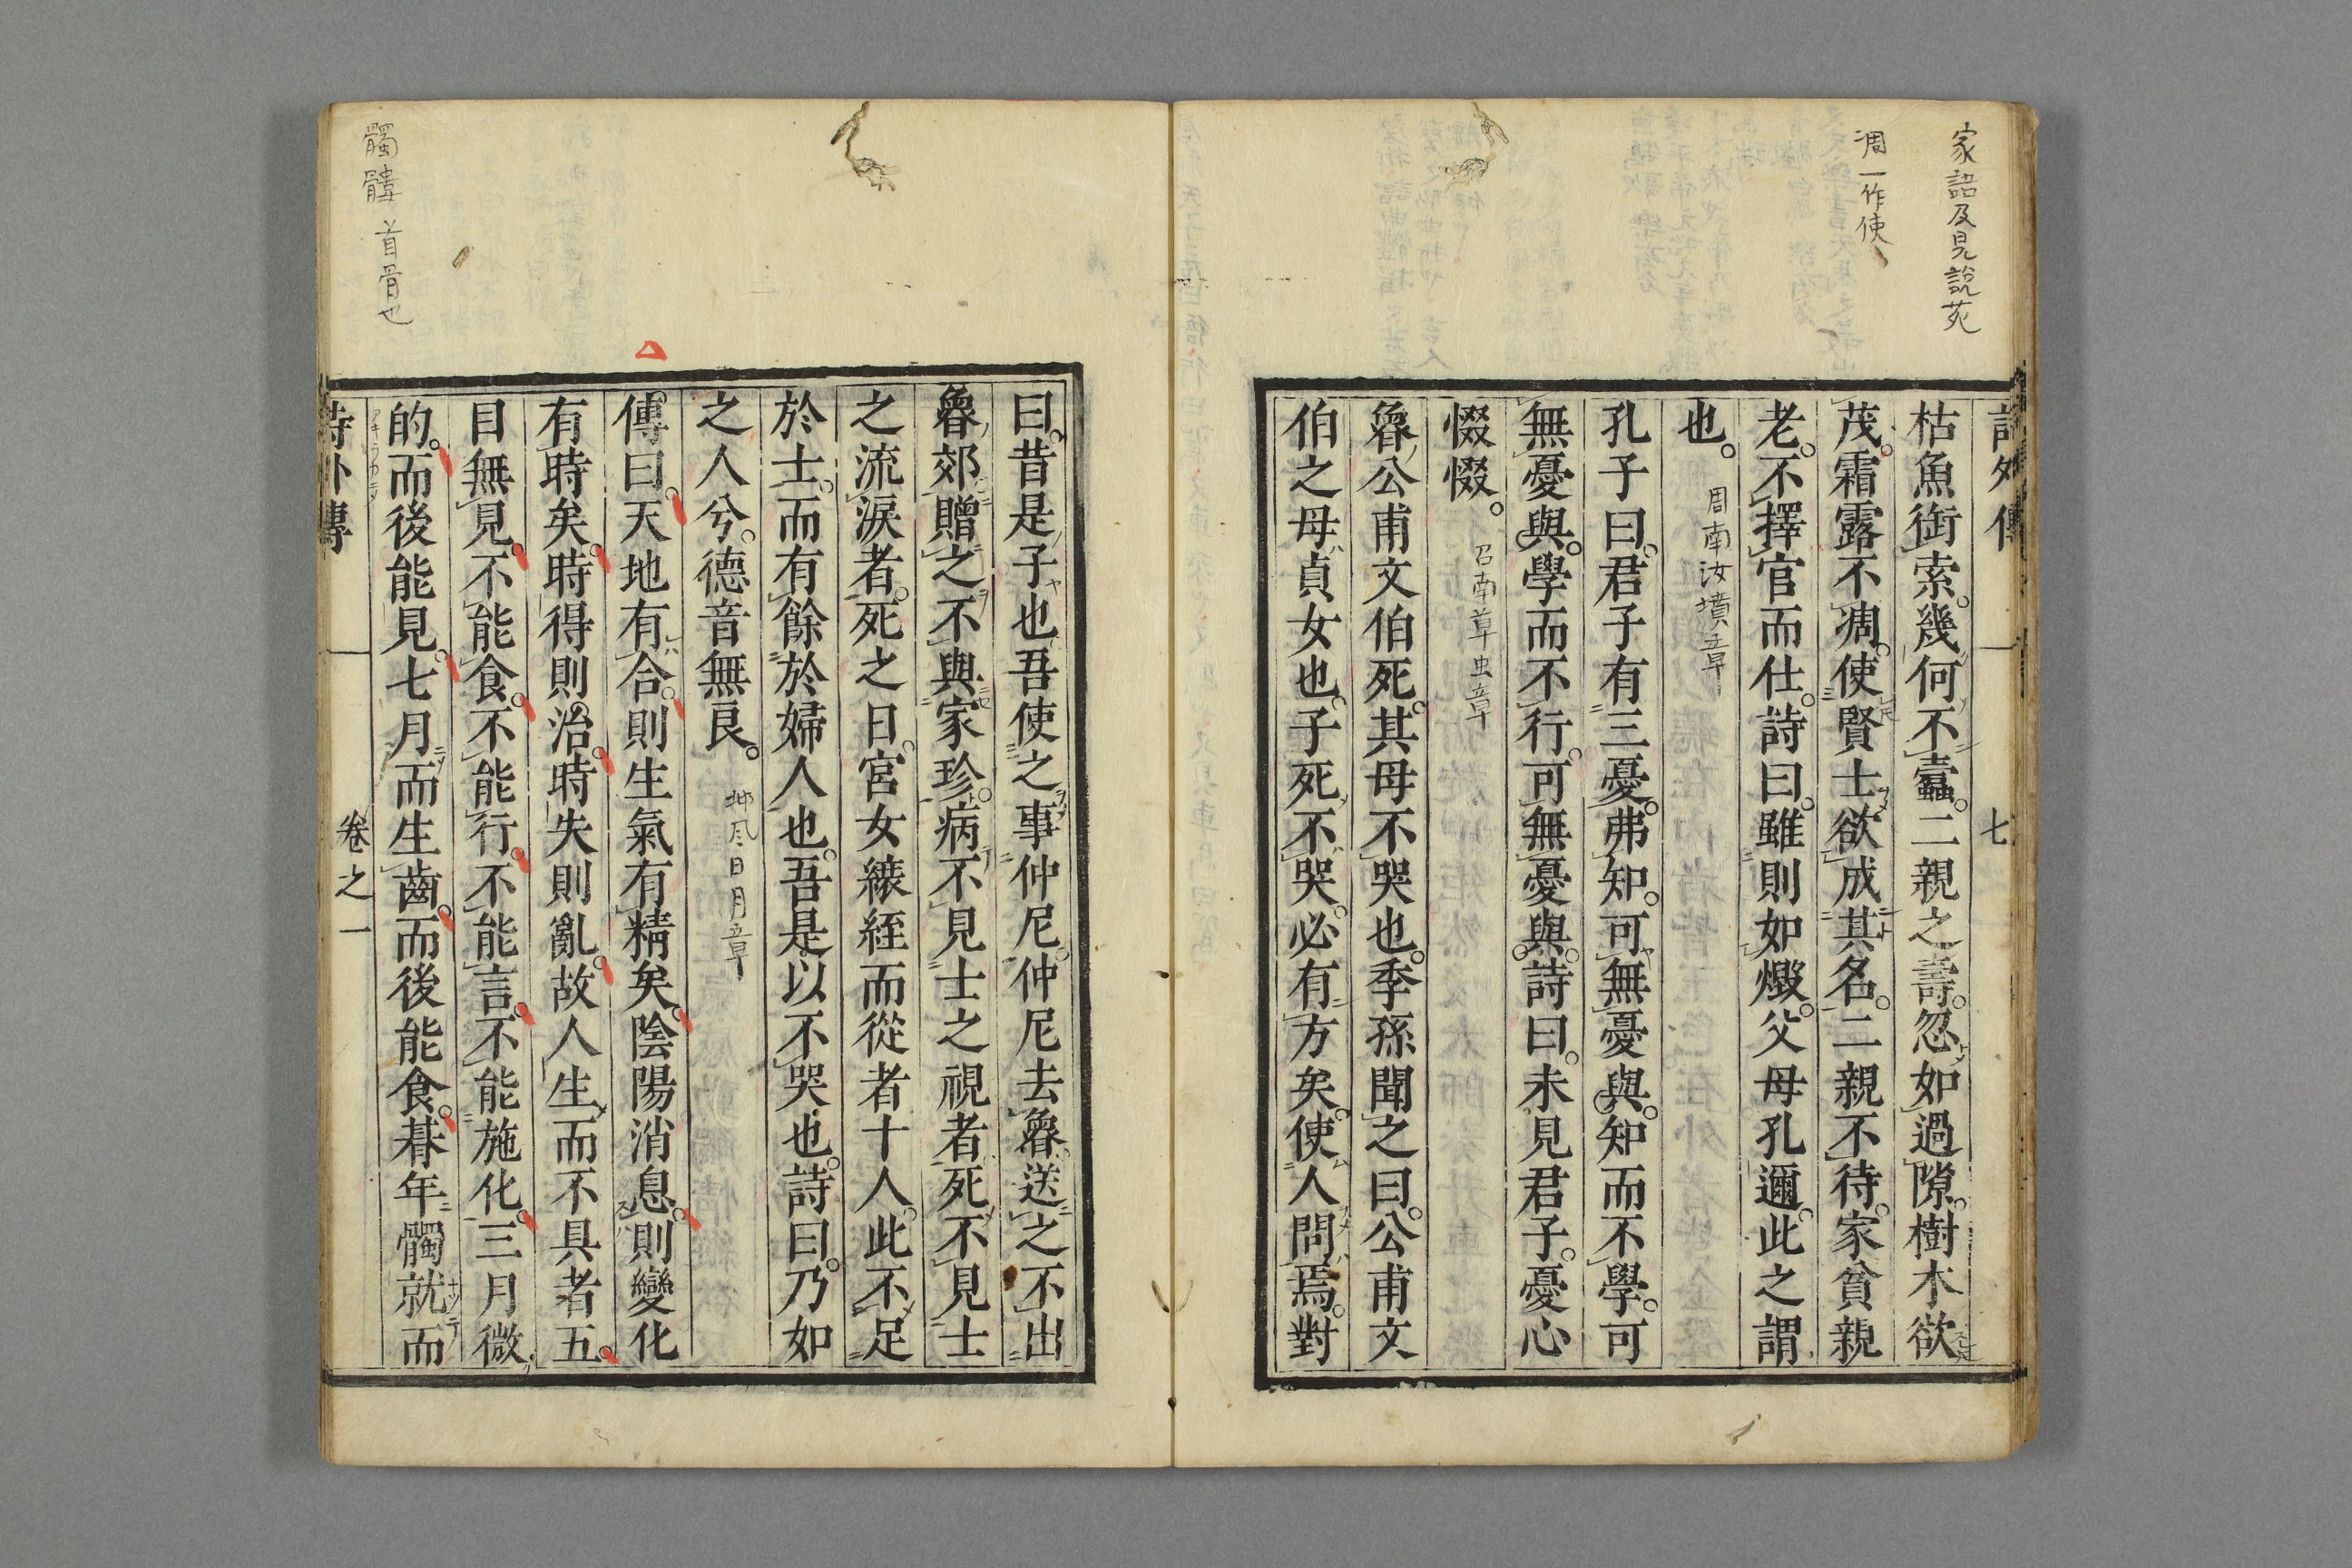 家語及見説苑
凋一作使
詩外傳
七
枯魚銜索。幾何不蠹。二親之壽。忽如過隙。樹木欲
茂。霜露不凋。使賢士欲成其名。二親不待。家貧親
老。不擇官而仕。詩曰。雖則如燬。父母孔邇。此之謂
也。周南汝墳章
孔子曰。君子有三憂。弗知。可無憂與。知而不學。可
無憂與。學而不行。可無憂與。詩曰。未見君子。憂心
惙惙。召南草虫章
魯公甫文伯死。其母不哭也。季孫聞之曰。公甫文
伯之母。貞女也。子死不哭。必有方矣。使人問焉。對
曰。昔是子也。吾使之事仲尼。仲尼去魯。送之不出
魯郊。贈之不與家珍。病不見士之視者。死不見士
之流淚者。死之日。宮女縗絰而從者十人。此不足
於士。而有餘於婦人也。吾是以不哭也。詩曰。乃如
之人兮。德音無良。邶風日月章
傳曰。天地有合。則生氣有精矣。陰陽消息。則變化
有時矣。時得則治。時失則亂。故人生而不具者五。
目無見。不能食。不能行。不能言。不能施化。三月微
的。而後能見。七月而生齒。而後能食。朞年髑就而
髑髏 首骨也
詩外傳
卷之一